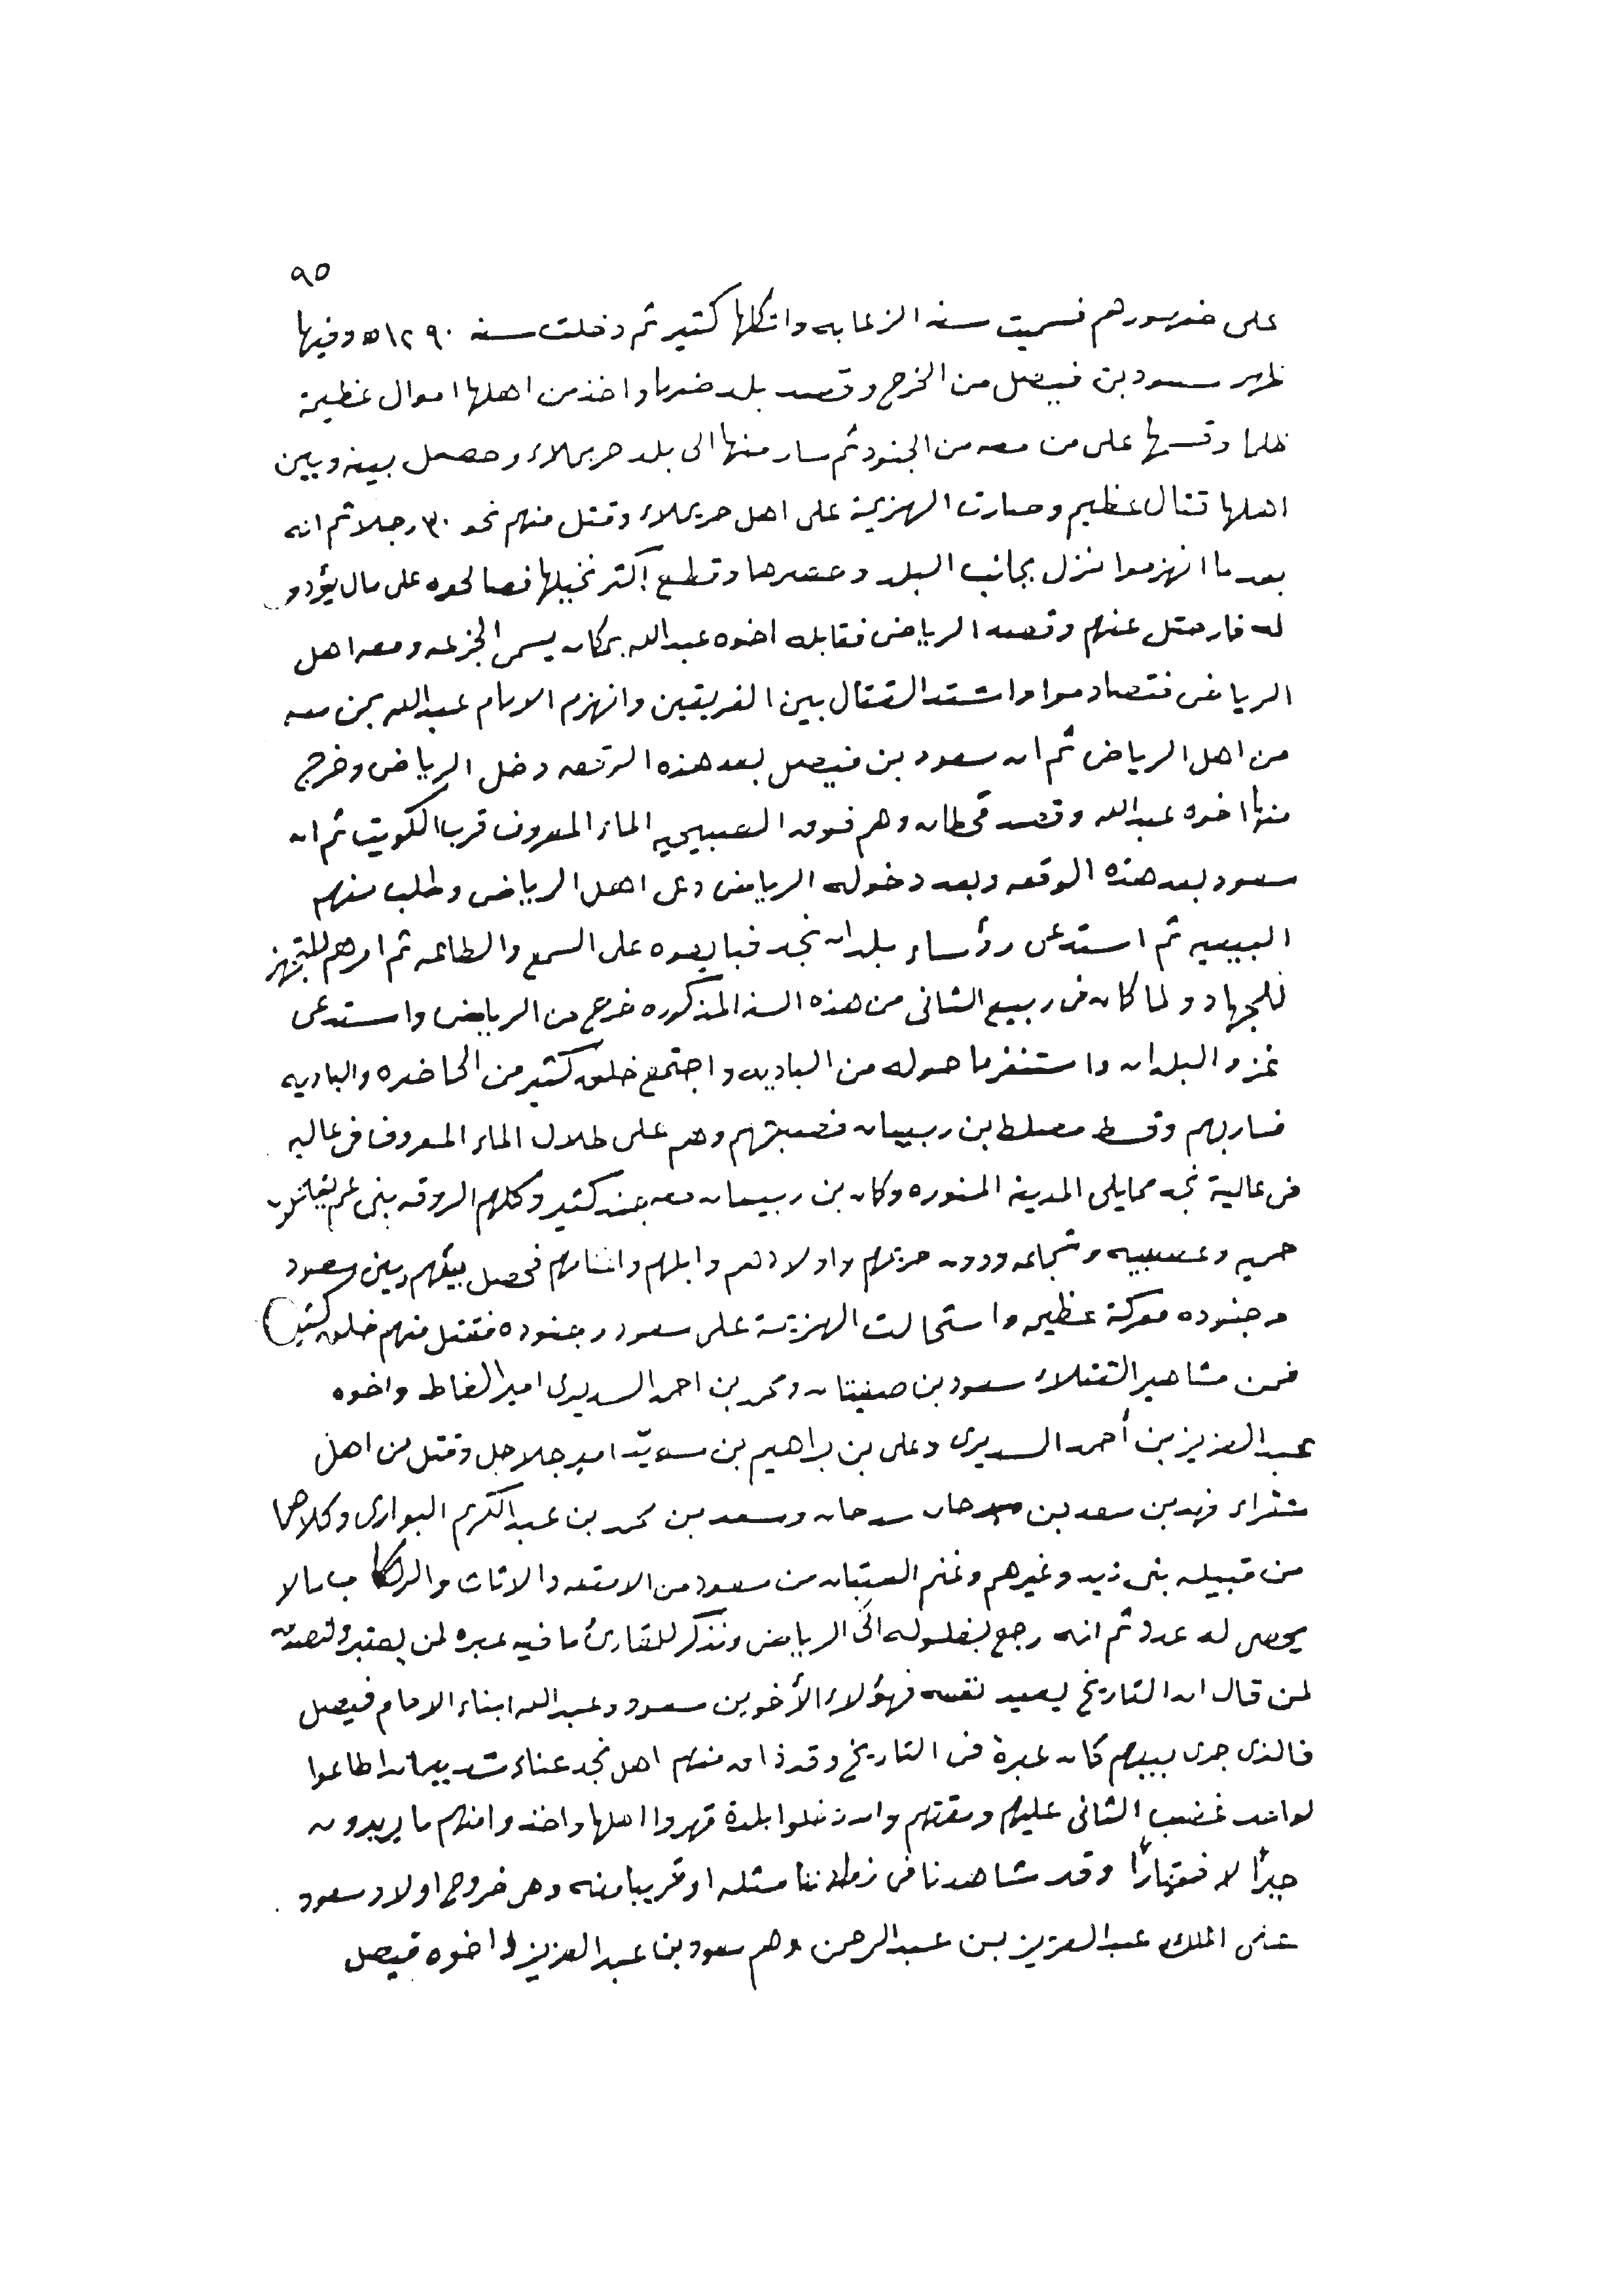 ٩٥
على ظهورهم فسميت سنة الزعابه واتكالها كثير ثم دخلت سنه ١٢٩٠ه وفيها
ظهر سعود بن فيصل من الخرج وقصد بلد ضرما واخذ من اهلها اموال عظيمة
ظلما وقسمها على من معه من الجنود ثم سار منها الى بلد حريملاء وحصل بينه وبين
اهلها قتال عظيم وصارت الهزيمة على اهل حريملاء وقتل منهم نحو ٣٠ رجلا ثم انه
بعد ما انهزموا نزل بجانب البلد وحصرها وقطع اكثر نخيلها فصالحوه على مال يؤدو
له فارحتل عنهم وقصد الرياض فقابله اخوه عبدالله بمكان يسمى الجزعه ومعه اهل
الرياض فتصادموا واشتد القتال بين الفريقين وانهزم الامام عبدالله بمن معه
من اهل الرياض ثم ان سعود بن فيصل بعد هذه الوقعه دخل الرياض وخرج
منها اخوه عبدالله وقصد قحطان وهم فوق الصبيحيه الماء المعروف قرب الكويت ثم ان
سعود بعد هذه الوقعه وبعد دخوله الرياض دعى اهل الرياض وطلب منهم
البيعيه ثم استدعى رؤساء بلدان نجد فبايعوه على السمع والطاعه ثم امرهم للتجهز
للجهاد ولما كان فى ربيع الثانى من هذه السنه المذكوره خرج من الرياض واستدعى
غزو البلدان واستنفر ما حوله من الباديه واجتمع خلق كثير من الحاضره والباديه
فسار بهم وقسط مصلط بن ربيعان فصبحهم وهم على طلال الماء المعروف فى عاليه
فى عالية نجد مما يلى المدينه المنوره وكان بن ربيعان معه جند كثير وكلهم الروقه بنى عم يقاتلون
حميه وعصبيه وشجاعه ودون حريمهم واولادهم وابلهم واغنامهم فحصل بينهم وبين سعود
وجنوده معركة عظيمه واستحالت الهزيمة على سعود وجنوده فقتل منهم خلق كثير
فمن مشاهير القتلاء سعود بن صنيتان ومحمد بن احمد السديرى امير الغاط واخوه
عبدالعزيز بن أحمد السديرى وعلى بن براهيم بن سويد امير جلاجل وقتل من اهل
شقراء فهد بن سعد بن سدحان وسعد بن محمد بن عبدالكريم البواردى وكلاهما
من قبيله بنى زيد وغيرهم وغنم العتبان من سعود من الامتعه والاثاث والركاب مالا
يحصى له عدد ثم انه رجع بفلوله الى الرياض ونذكر للقارئ ما فيه عبره لمن يعتبر وتصديق
لمن قال ان التاريخ يعيد نفسه فهؤلاء الأخوين سعود وعبدالله ابناء الامام فيصل
فالذى جرى بينهم كان عبرة فى التاريخ وقد ذاق منهم اهل نجد عناء شديد ان اطاعوا
لواحد غضب الثانى عليهم ومقتهم وان دخلوا بلدة قهروا اهلها واخذوا منهم ما يريدون
جبرًا لا فقهارًا وقد شاهدنا فى زماننا مثله او قريبا منه وهى خروج اولاد سعود
عن الملك عبدالعزيز بن عبدالرحمن وهم سعود بن عبدالعزيز واخوه فيصل